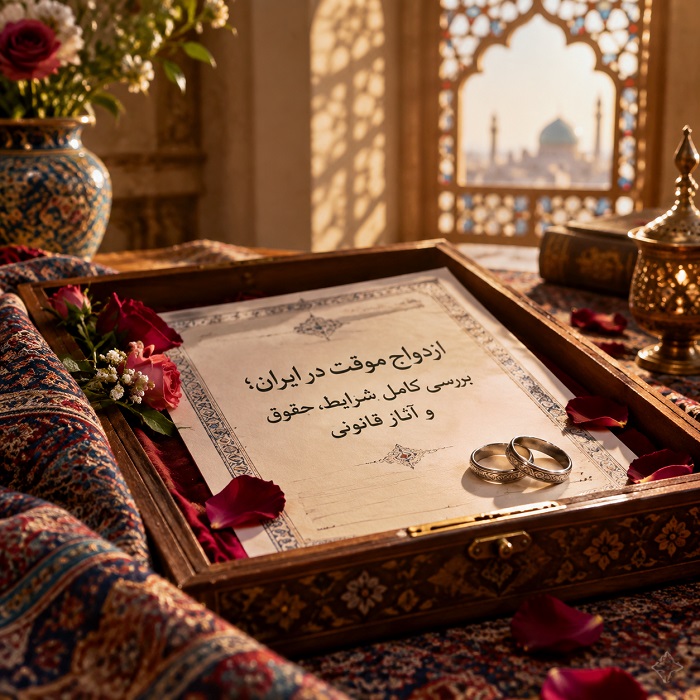 ازدواج موقت در ایران؛
بررسی کامل شرایط، حقوق
و آثار قانونی